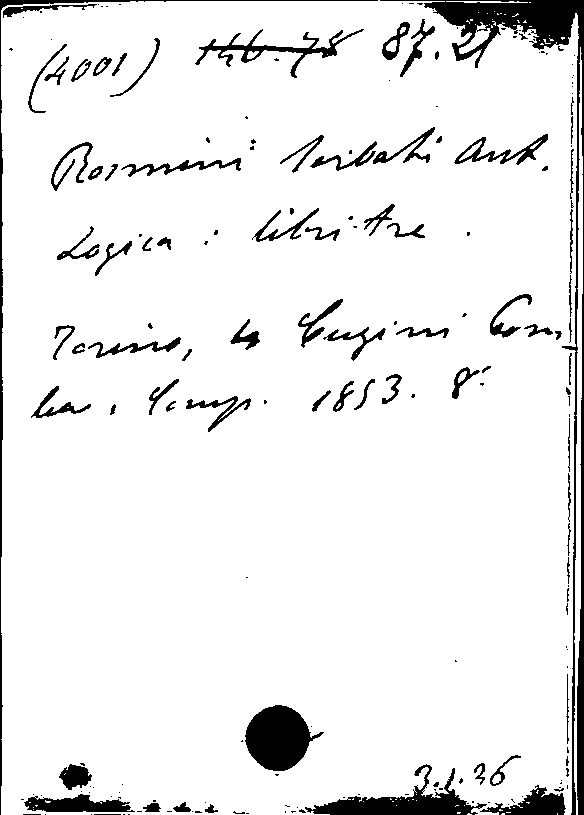 (4001) 146.78 87.21
Rosmini Serbati Ant.
Logica : libri tre .
Torino, Cugini Pom-
ba, Comp. 1853. 8°
3.1.36